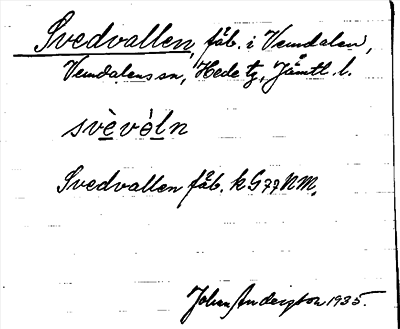 Svedvallen, fäb. i Vemdalen,
Vemdalens sn, Hede tg, Jämtl. l.
svè̲vòl̲n
Svedvallen fäb. k G 77 NM.
Johan Anderzton 1935.